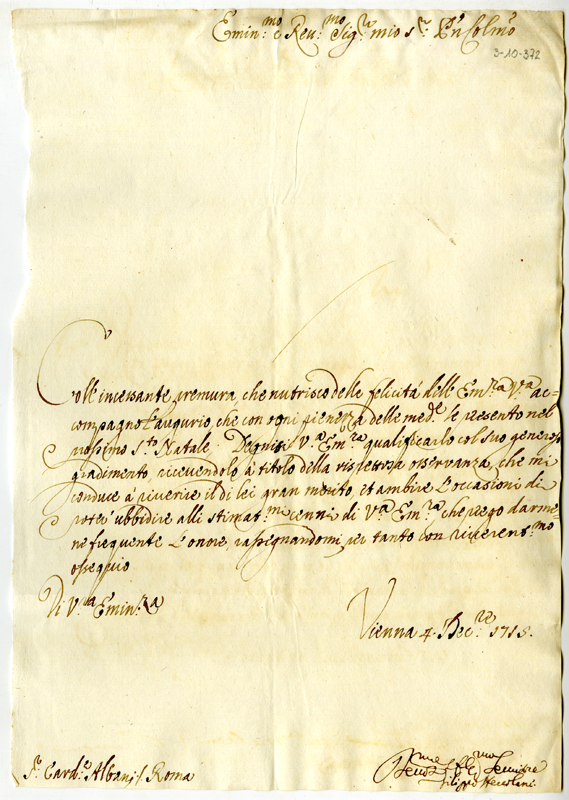 Emin:mo e Reu:mo Sig:r mio s:r Pn Colmo
3-10-372
Coll' incessante premura, che nutrisco delle felicità dell' Em:za V:ra ac-
compagno l'augurio, che con ogni pienezza delle med:e le presento nel
prossimo S:to Natale. Degnisi V:a Em:za qualificarlo col suo generoso
gradimento, ricevendolo à titolo della rispettosa osservanza, che mi
conduce à riverire il di lei gran merito, et ambire l'occasioni di
poter' ubbidire alli stimat:mi cenni di V:a Em:za che prego darme
ne frequente l'onore, rassegnandomi per tanto con riverent:mo
ossequio
Di V:ra Emin:za
Vienna 4. Dec:re 1715.
S:r Card:e Albani / Roma
Filippo Hercolani